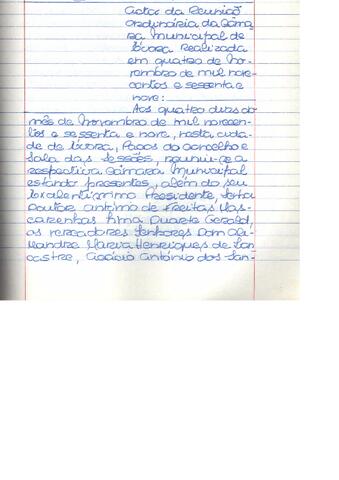 Acta da Reunião
Ordinária da Câma-
ra Municipal de
Évora realizada
em quatro de No-
vembro de mil nove-
centos e sessenta e
nove:
Aos quatro dias do
mês de Novembro de mil novecen-
tos e sessenta e nove, nesta cida-
de de Évora, Paços do Concelho e
Sala das Sessões, reuniu-se a
respectiva Câmara Municipal
estando presentes, além do seu
Excelentíssimo Presidente, Senhor
Doutor António de Freitas Mas-
carenhas Lima Duarte Gerald,
os vereadores Senhores Dom Ale-
xandre Maria Henriques de Lan-
castre, Acácio António dos San-